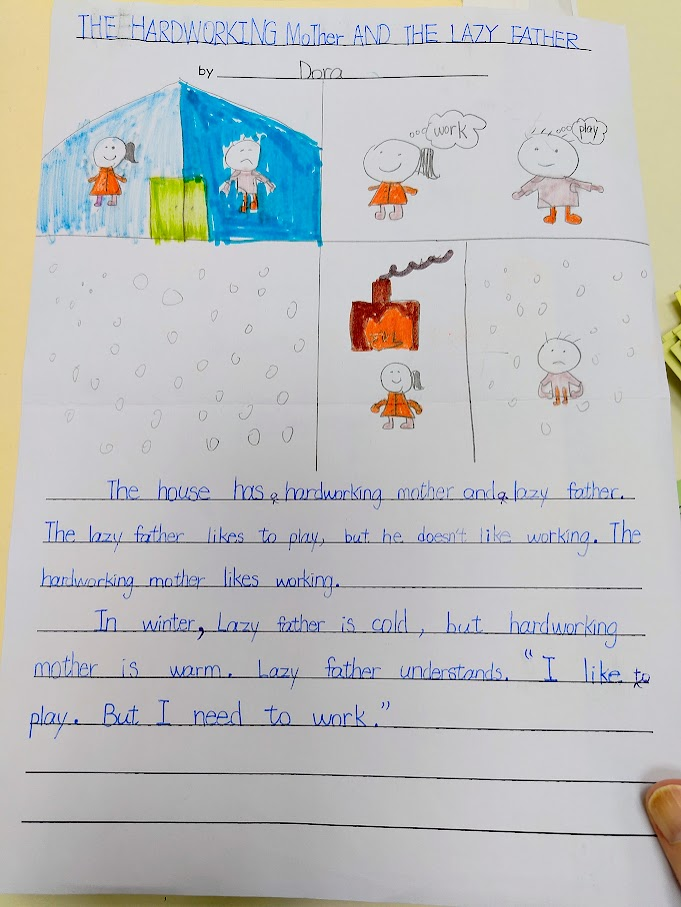 THE HARDWORKING MoTher AND THE LAZY FATHER
by Dora
work
play
The house has a hardworking mother and a lazy father.
The lazy father likes to play, but he doesn't like working. The
hardworking mother likes working.
In winter, Lazy father is cold, but hardworking
mother is warm. Lazy father understands. "I like to
play. But I need to work."